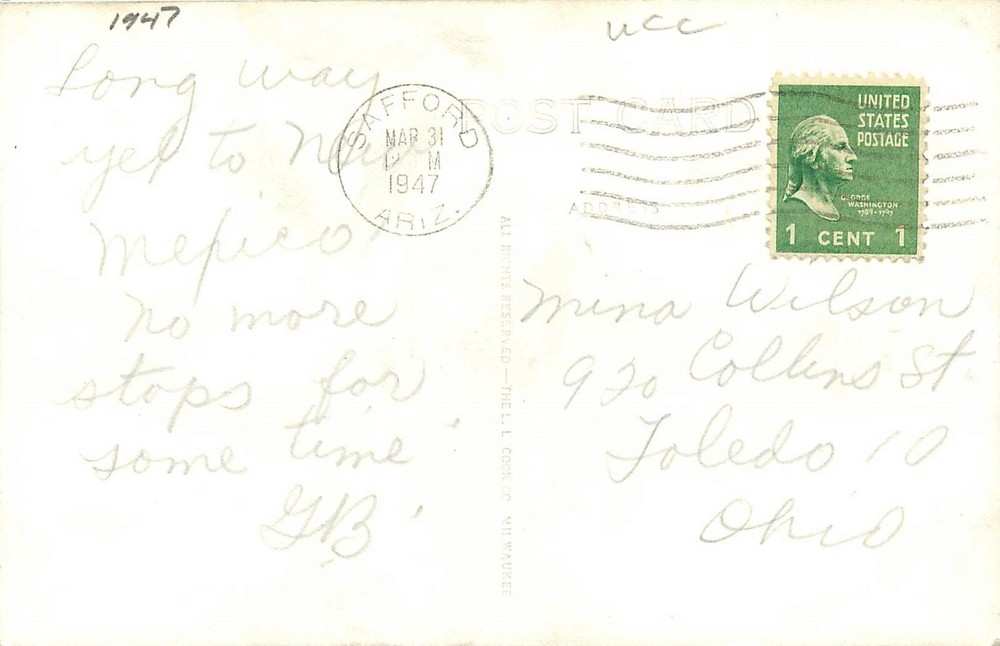 1947
ucc
Long way
yet to New
Mexico
No more
stops for
some time
GB
POST CARD
ADDRESS
SAFFORD
MAR 31
12 M
1947
ARIZ.
UNITED
STATES
POSTAGE
GEORGE
WASHINGTON
1789-1797
1 CENT 1
ALL RIGHTS RESERVED—THE L. L. COOK CO. MILWAUKEE
Mina Wilson
920 Collins St
Toledo 10
Ohio